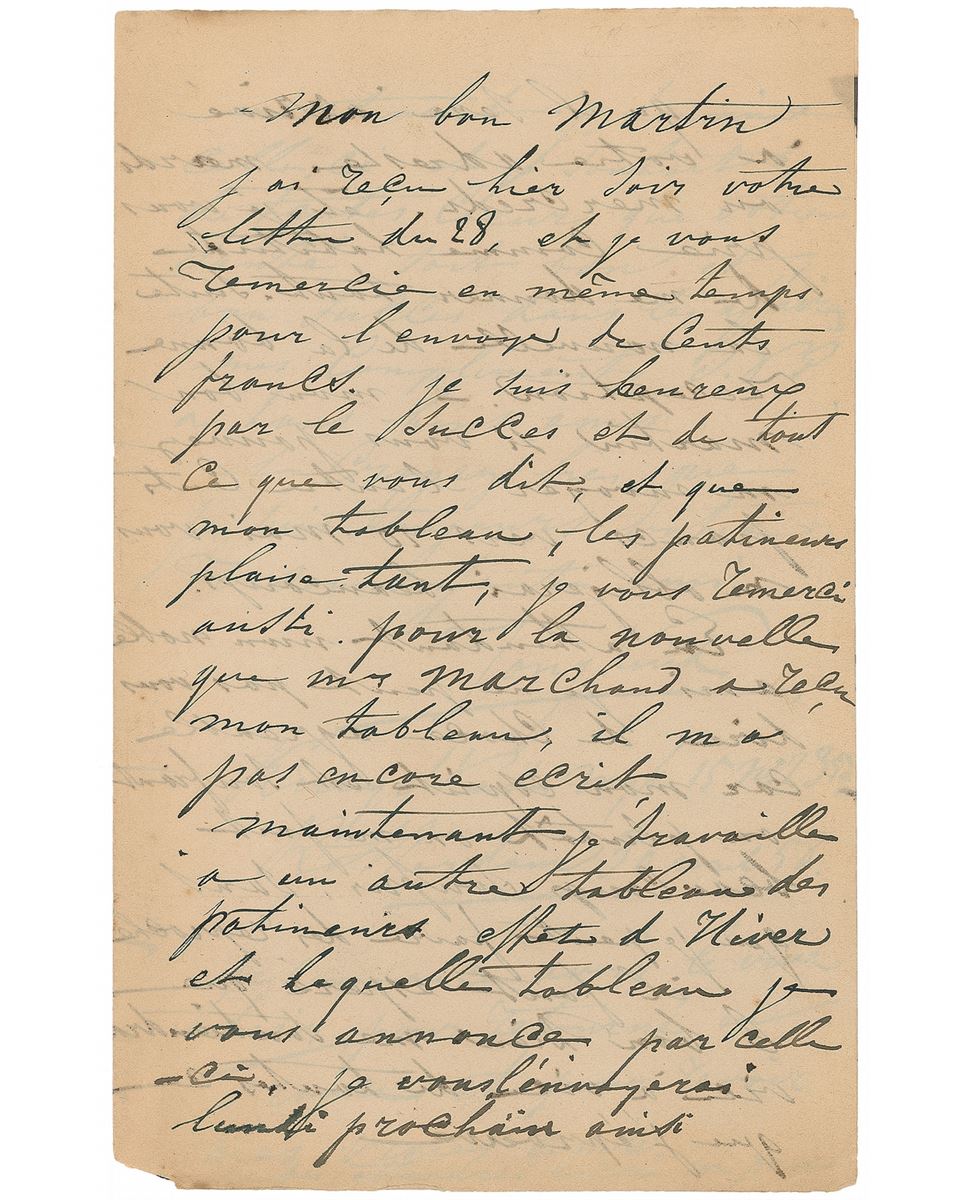 Mon bon Martin
j ai reçu hier soir votre
lettre du 28, et je vous
remercie en même temps
pour l envoye de Cents
francs. je suis heureux
par le succes et de tout
Ce que vous dit, et que
mon tableau, les patineurs
plaise tant, je vous remerci
aussi. pour la nouvelles
que mr Marchand a reçu
mon tableau, il m a
pas encore ecrit,
maintenant je travaille
a un autre tableau des
patineurs effet d Hiver
et lequelle tableau je
vous annonce par celle
-ci. je vous l'énvoyerai
lundi prochain ainsi